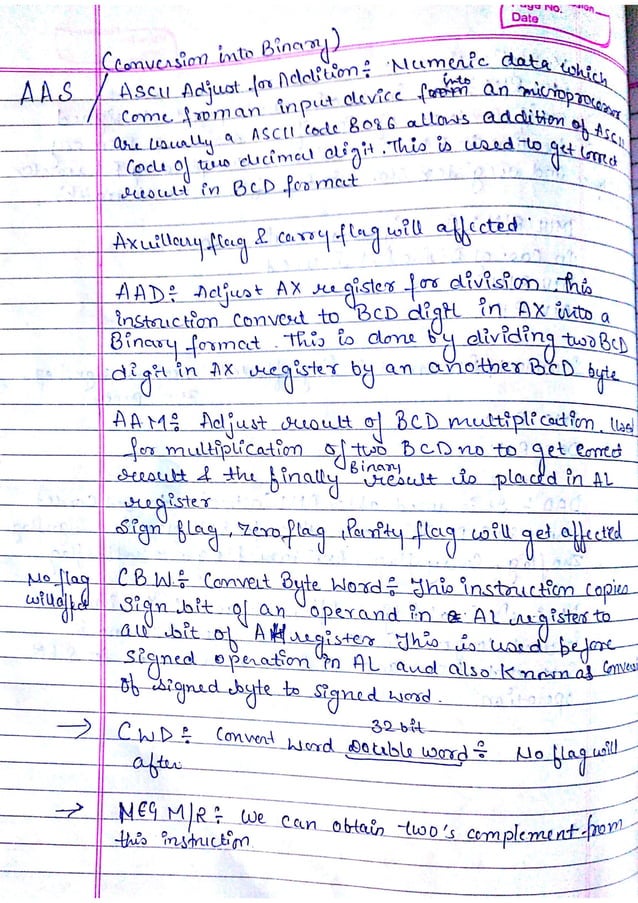 Page No.
Date
(Conversion into Binary)
AAS / ASCII Adjust for Addition:- Numeric data which
come from an input device into an microprocessor
are usually a ASCII code 8086 allows addition of ASCII
Code of two decimal digit. This is used to get correct
result in BCD format
Axuillary flag & carry flag will affected.
AAD:- Adjust AX register for division This
instruction convert to BCD digit in AX into a
Binary format. This is done by dividing two BCD
digit in AX register by an another BCD byte
AAM:- Adjust result of BCD multiplication. Used
for multiplication of two BCD no to get correct
result & the finally Binary result is placed in AL
register
Sign flag, Zero flag, Parity flag will get affected
No flag
will affect
CBW:- Convert Byte Word:- This instruction copies
Sign bit of an operand in AL register to
all bit of AH register This is used before
signed operation in AL and also known as Convers
of signed byte to signed word.
32 bit
→ CWD:- Convert Word Double word:- No flag will
after
→ NEG M/R:- We can obtain two's complement from
this instruction.